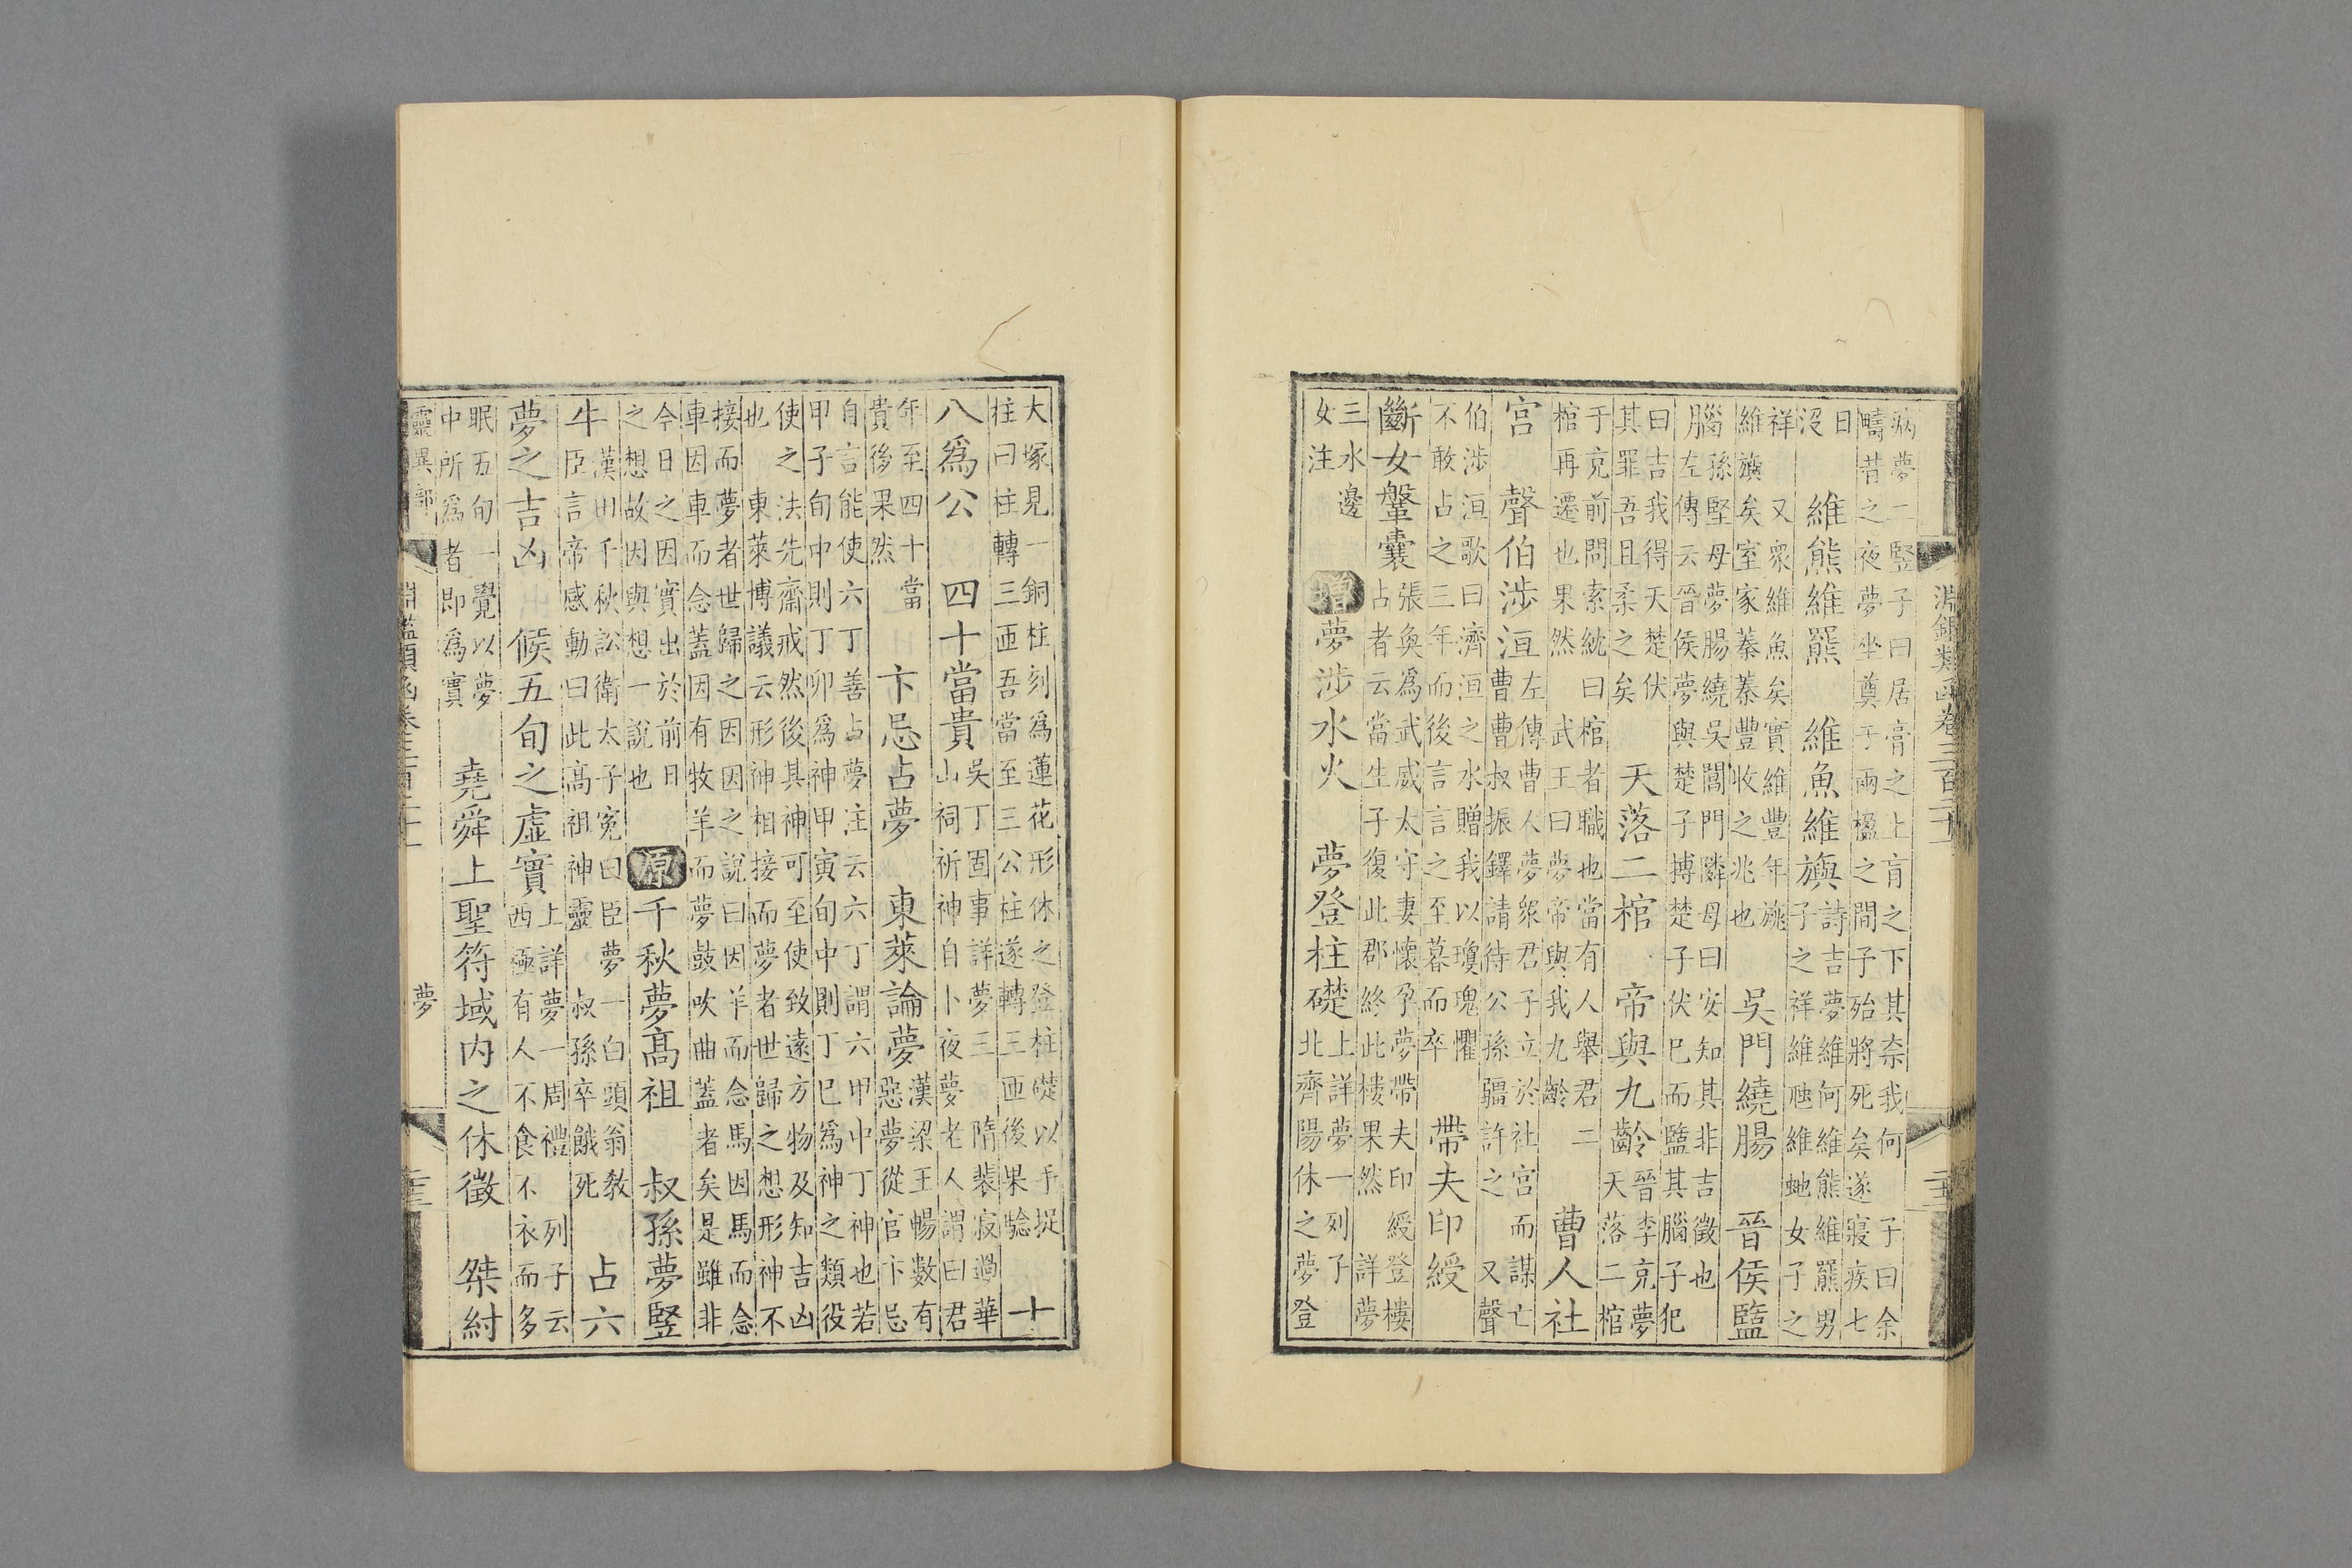 淵鑑類函卷三百二十
病夢二竪子曰居膏之上肓之下其奈我何 子曰余
疇昔之夜夢坐奠于兩楹之間子殆將死矣遂寢疾七
日沒 維熊維羆 維魚維旟 詩吉夢維何維熊維羆男
子之祥維虺維蛇女子之
祥 又衆維魚矣實維豐年旐
維旟矣室家蓁蓁豐收之兆也 吳門繞腸 晉侯盬
腦 孫堅母夢腸繞吳閶門隣母曰安知其非吉徵也
左傳云晉侯夢與楚子搏楚子伏巳而盬其腦子犯
曰吉我得天楚伏
其罪吾且柔之矣 天落二棺 帝與九齡 晉李克夢
天落二棺
于克前問索紞曰棺者職也當有人舉君二
棺再遷也果然 武王曰夢帝與我九齡 曹人社
宮 聲伯涉洹 左傳曹人夢衆君子立於社宮而謀亡
曹曹叔振鐸請待公孫疆許之 又聲
伯涉洹歌曰濟洹之水贈我以瓊瑰懼
不敢占之三年而後言言之至暮而卒 帶夫印綬
斷女鞶囊 張奐為武威太守妻懷孕夢帶夫印綬登樓
占者云當生子復此郡終此樓果然 詳夢
三水邊
女注 增 夢涉水火 夢登柱礎 上詳夢一列子
北齊陽休之夢登
大塚見一銅柱刻為蓮花形休之登柱礎以手捉
柱曰柱轉三匝吾當至三公柱遂轉三匝後果驗 十
八為公 四十當貴 吳丁固事詳夢三 隋裴寂過華
山祠祈神自卜夜夢老人謂曰君
年至四十當
貴後果然 卞忌占夢 東萊論夢 漢梁王暢數有
惡夢從官卞忌
自言能使六丁善占夢注云六丁謂六甲中丁神也若
甲子旬中則丁卯為神甲寅旬中則丁巳為神之類役
使之法先齋戒然後其神可至使致遠方物及知吉凶
也 東萊博議云形神相接而夢者世歸之想形神不
接而夢者世歸之因因之說曰因羊而念馬因馬而念
車因車而念蓋因有牧羊而夢鼓吹曲蓋者矣是雖非
今日之因實出於前日
之想故因與想一說也 原 千秋夢高祖 叔孫夢竪
牛 漢田千秋訟衛太子冤曰臣夢一白頭翁教
臣言帝感動曰此高祖神靈 叔孫卒餓死 占六
夢之吉凶 候五旬之虛實 上詳夢一周禮 列子云
西極有人不食不衣而多
眠五旬一覺以夢
中所為者即為實 堯舜上聖符域內之休徵 桀紂
靈異部 夢